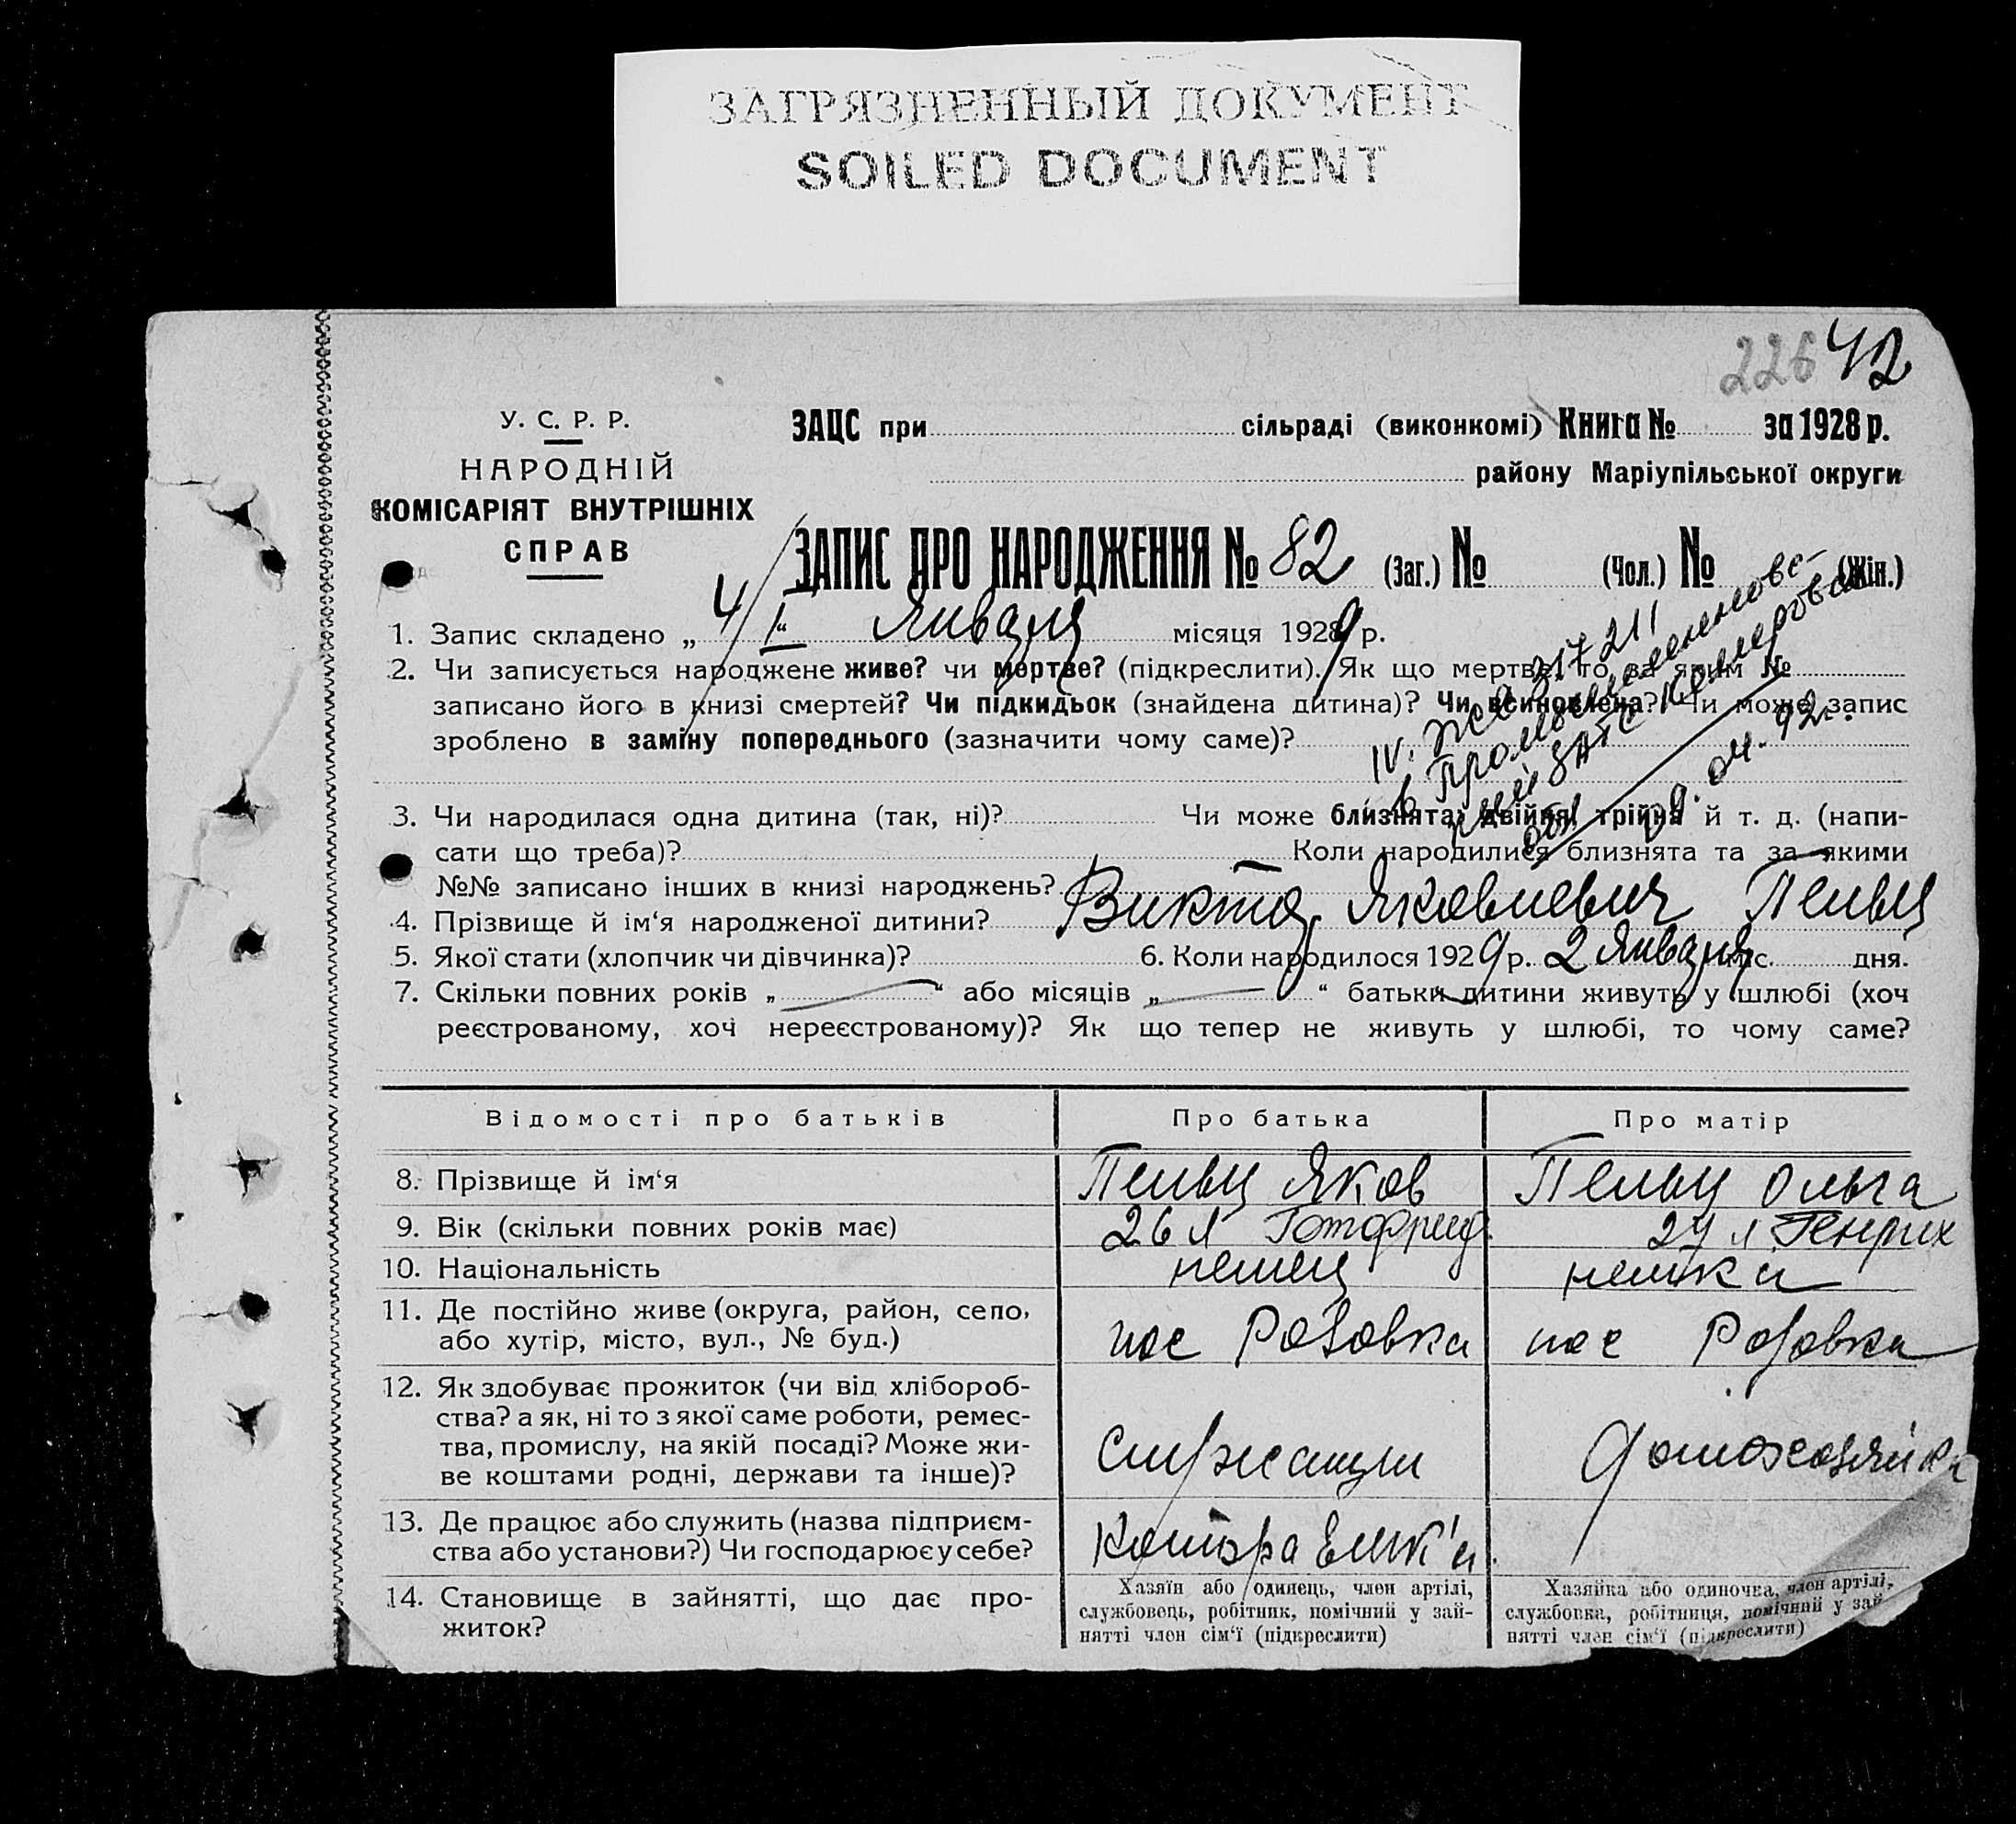 ЗАГРЯЗНЕННЫЙ ДОКУМЕНТ
SOILED DOCUMENT
226 42
У. С. Р. Р.
НАРОДНІЙ
КОМІСАРІЯТ ВНУТРІШНІХ
СПРАВ
ЗАЦС при сільраді (виконкомі) Книга № за 1928 р.
району Маріупільської округи
ЗАПИС ПРО НАРОДЖЕННЯ № 82 (Заг.) № (Чол.) № (Жін.)
1. Запис складено „ 4/I “ Января місяця 1929 р.
2. Чи записується народжене живе? чи мертве? (підкреслити). Як що мертве, то за яким №
записано його в книзі смертей? Чи підкидьок (знайдена дитина)? Чи всиновлена? Чи може запис
зроблено в заміну попереднього (зазначити чому саме)?
IV. ЖСА 317211
в Промышленновс-
кий ЗАГС Кемеровск
обл 29. 04. 92г.
3. Чи народилася одна дитина (так, ні)? Чи може близнята: двійня, трійня й т. д. (напи-
сати що треба)? Коли народилися близнята та за якими
№№ записано інших в книзі народжень?
4. Прізвище й ім‘я народженої дитини? Виктор Яковлевич Пельц
5. Якої стати (хлопчик чи дівчинка)? 6. Коли народилося 1929 р. 2 Января міс. дня.
7. Скільки повних років „ — “ або місяців „ — “ батьки дитини живуть у шлюбі (хоч
реєстрованому, хоч нереєстрованому)? Як що тепер не живуть у шлюбі, то чому саме?
Відомості про батьків Про батька Про матір
8. Прізвище й ім‘я Пельц Яков Пельц Ольга
9. Вік (скільки повних років має) 26 л Готфрид. 24 л Генрих
10. Національність немец немка
11. Де постійно живе (округа, район, село,
або хутір, місто, вул., № буд.) пос Розовка пос Розовка
12. Як здобуває прожиток (чи від хлібороб-
ства? а як, ні то з якої саме роботи, ремес-
тва, промислу, на якій посаді? Може жи-
ве коштами родні, держави та інше)? Служащий домохозяйка
13. Де працює або служить (назва підприєм-
ства або установи?) Чи господарює у себе? Контора
14. Становище в зайнятті, що дає про-
житок?
Хазяїн або одинець, член артілі,
службовець, робітник, помічний у зай-
нятті член сім‘ї (підкреслити)
Хазяйка або одиночка, член артілі,
службовка, робітниця, помічний у зай-
нятті член сім‘ї (підкреслити)